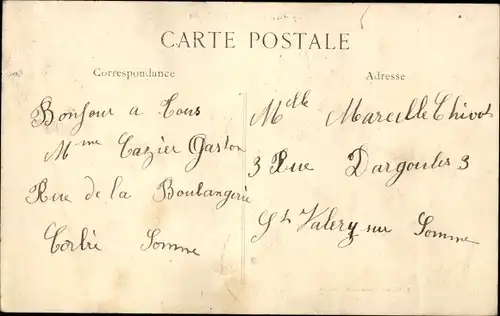 CARTE POSTALE
Correspondance
Adresse
Bonjour a Tous
Mme Cazier Gaston
Rue de la Boulangerie
Corbie Somme
Mdlle Marcelle Chivot
3 Rue Dargoules 3
St Valery sur Somme